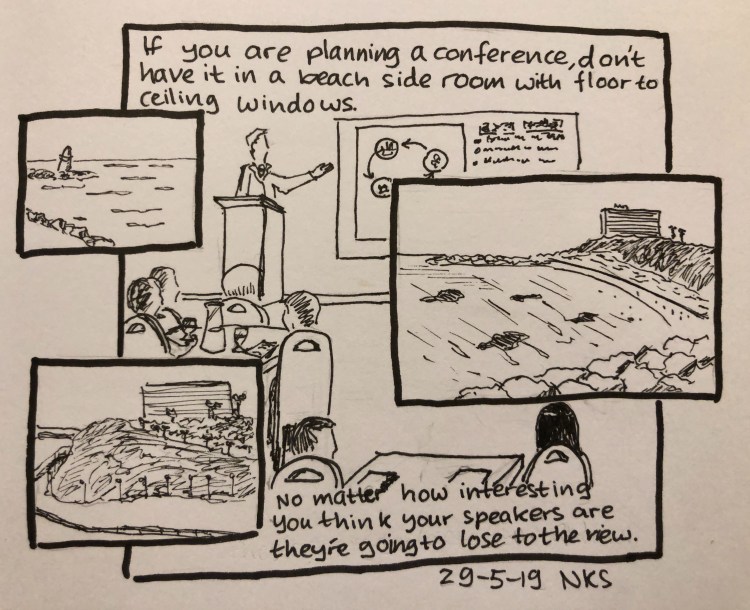 If you are planning a conference, don't
have it in a beach side room with floor to
ceiling windows.
No matter how interesting
you think your speakers are
they're going to lose to the view.
29-5-19 NKS